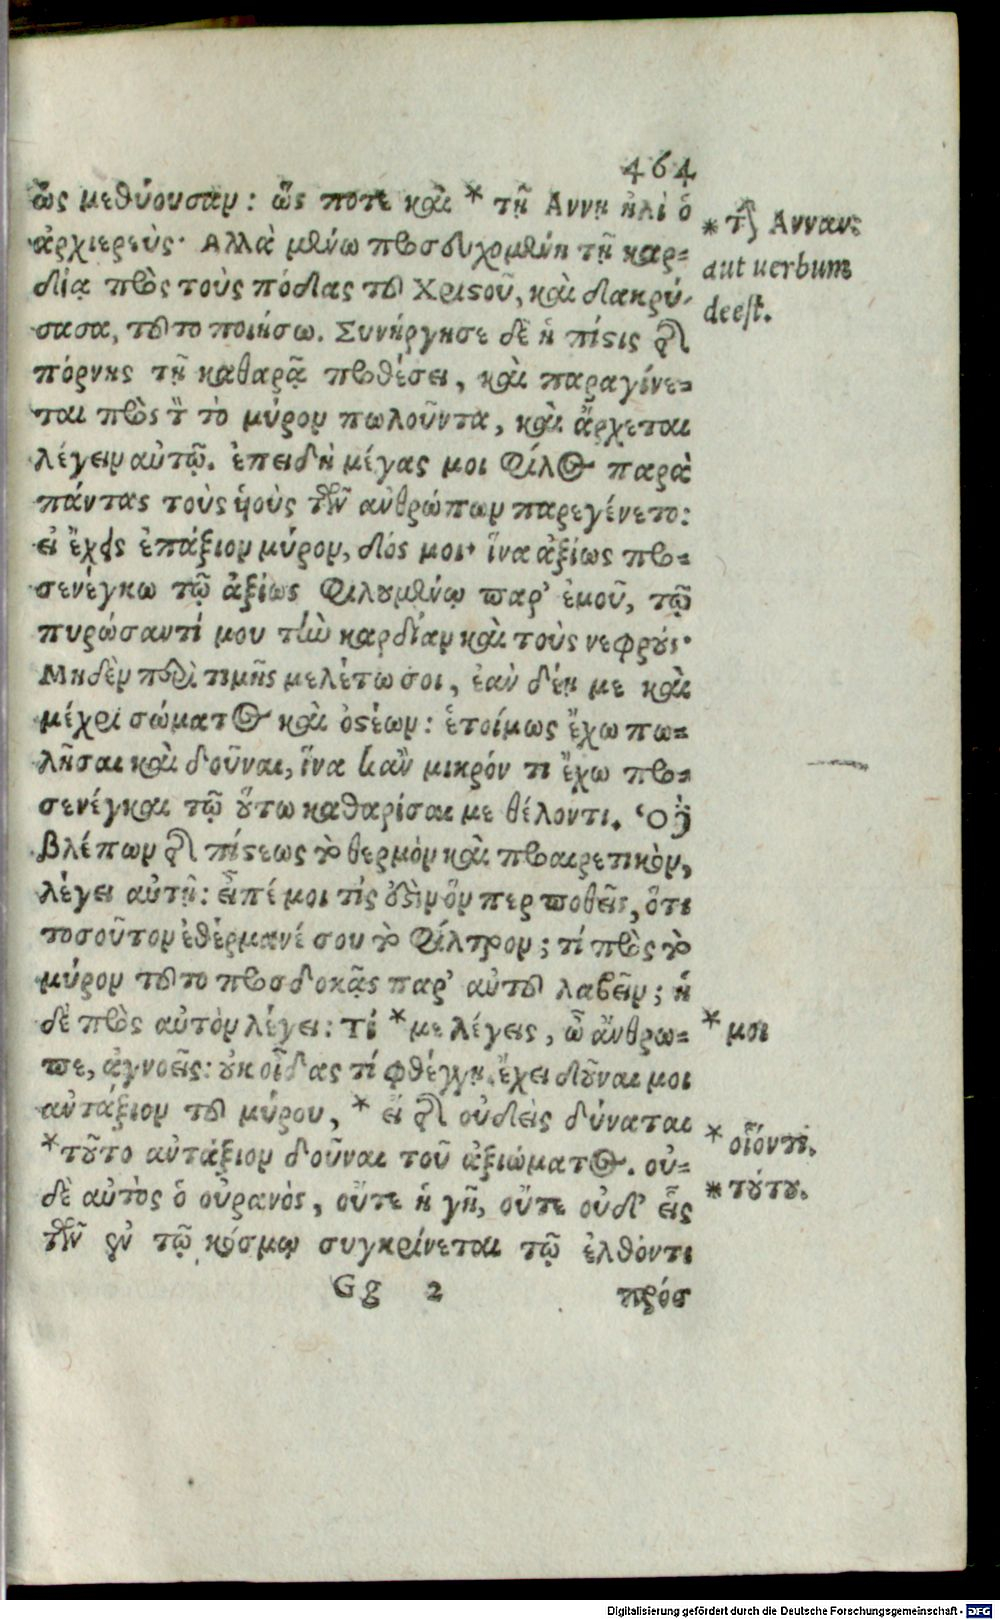 464
ὥς μεθύουσαν: ὥς ποτε καὶ * τῇ Αννῃ ἠλὶ ὁ
ἀρχιερεὺς· Αλλὰ μένω προσευχομένη τῇ καρ-
δίᾳ πρὸς τοὺς πόδας τοῦ Χριστοῦ, καὶ δακρύ-
σασα, τοῦτο ποιήσω. Συνήργησε δὲ ἡ πίστις τῆς
πόρνης τῇ καθαρᾷ προθέσει, καὶ παραγίνε-
ται πρὸς τὸν τὸ μύρον πωλοῦντα, καὶ ἄρχεται
λέγειν αὐτῷ. ἐπειδὴ μέγας μοι φίλος παρὰ
πάντας τοὺς υἱοὺς τῶν ἀνθρώπων παρεγένετο:
εἰ ἔχεις ἐπάξιον μύρον, δός μοι· ἵνα ἀξίως προ-
σενέγκω τῷ ἀξίως φιλουμένῳ παρ' ἐμοῦ, τῷ
πυρώσαντί μου τὴν καρδίαν καὶ τοὺς νεφρούς·
Μηδὲν περὶ τιμῆς μελέτω σοι, ἐὰν δέῃ με καὶ
μέχρι σώματος καὶ ὀστέων: ἑτοίμως ἔχω πω-
λῆσαι καὶ δοῦναι, ἵνα κἂν μικρόν τι ἔχω προ-
σενέγκαι τῷ οὕτω καθαρίσαι με θέλοντι. Ὁ δὲ
βλέπων τῆς πίστεως τὸ θερμὸν καὶ προαιρετικὸν,
λέγει αὐτῇ: εἶπέ μοι τίς ἐστὶν ὅν περ ποθεῖς, ὅτι
τοσοῦτον ἐθέρμανέ σου τὸ φίλτρον; τί πρὸς τὸ
μύρον τοῦτο προσδοκᾷς παρ' αὐτοῦ λαβεῖν; ἡ
δὲ πρὸς αὐτὸν λέγει: Τί * με λέγεις, ὦ ἄνθρω-
πε, ἀγνοεῖς: οὐκ οἶδας τί φθέγγῃ. ἔχει δοῦναι μοι
αὐτάξιον τοῦ μύρου, * εἴ γε οὐδεὶς δύναται
* τοῦτο αὐτάξιον δοῦναι τοῦ ἀξιώματος. οὐ-
δὲ αὐτὸς ὁ οὐρανὸς, οὔτε ἡ γῆ, οὔτε οὐδ' εἷς
τῶν ἐν τῷ κόσμῳ συγκρίνεται τῷ ἐλθόντι
Gg 2 πρός
* τὴν Ανναν:
aut uerbum
deest.
* μοι
* οἷόντι.
* τούτου.
Digitalisierung gefördert durch die Deutsche Forschungsgemeinschaft - DFG